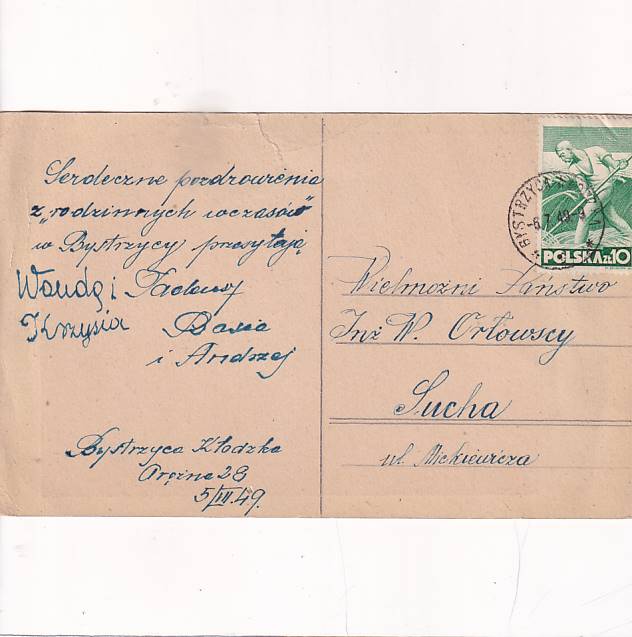 Serdeczne pozdrowienia
z „rodzinnych wczasów"
w Bystrzycy przesyłają
Wanda i Tadeusz
Krzysia Basia
i Andrzej
Bystrzyca Kłodzka
28
5/VII.49.
BYSTRZYCA
-6.7.49-9
POLSKA ZŁ 10
Wielmożni Państwo
Inż W. Orłowscy
Sucha
ul. Mickiewicza